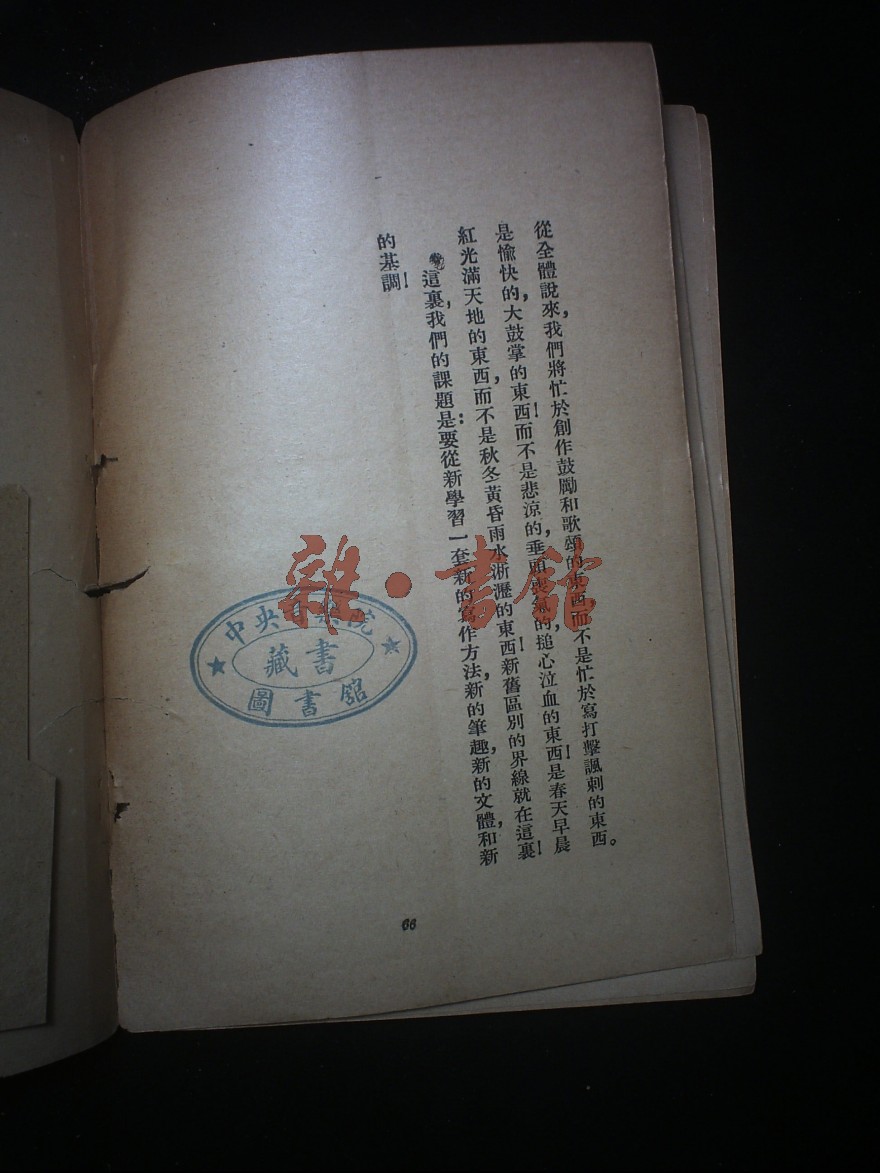 從全體說來，我們將忙於創作鼓勵和歌頌的東西而不是忙於寫打擊諷刺的東西。
是愉快的，大鼓掌的東西！而不是悲涼的，垂頭喪氣的，搥心泣血的東西！是春天早晨
紅光滿天地的東西，而不是秋冬黃昏雨水淅瀝的東西！新舊區別的界線就在這裏！
這裏，我們的課題是：要從新學習一套新的寫作方法，新的筆趣，新的文體，和新
的基調！
66
中央 院
藏書
圖書館
雜·書館